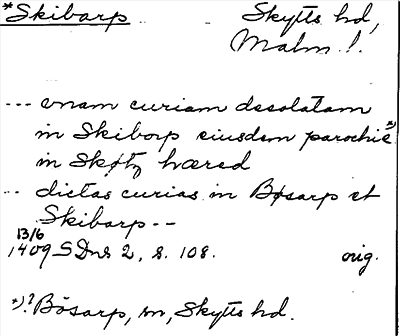 *Skibarp
Skytts hd,
Malm. l.
--- vnam curiam desolatam
in Skiborp eiusdem parochie *)
in Skøtz hæred
-- dictas curias in Bøsarp et
Skibarp --
13/6
1409 SDns 2, s. 108. orig.
*)? Bösarp, sn, Skytts hd.